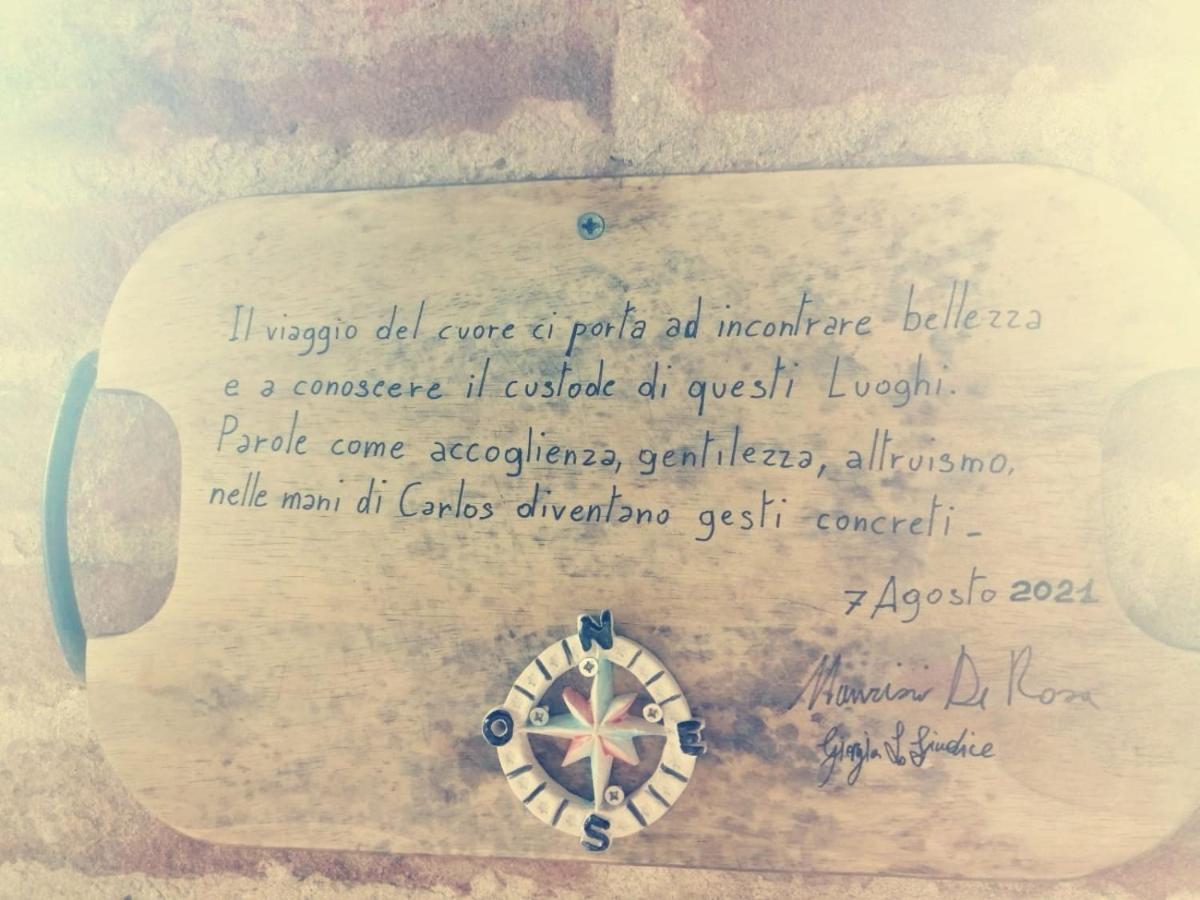 Il viaggio del cuore ci porta ad incontrare bellezza
e a conoscere il custode di questi Luoghi.
Parole come accoglienza, gentilezza, altruismo,
nelle mani di Carlos diventano gesti concreti_
7 Agosto 2021
Maurizio De Rosa
Giorgia Lo Giudice
N
O E
S